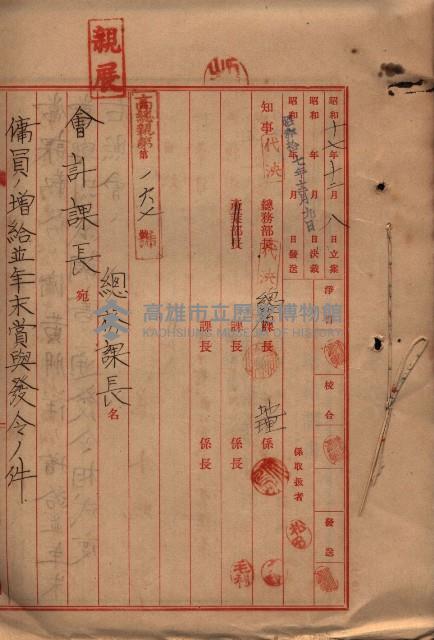 親展
昭和十七年十二月八日立案
昭和 年 月 日決裁
昭和 年 月 日發送
淨書
校合
發送
係取扱者
知事 代決
總務部長 代決
產業部長
總 課長
課長
課長
係
係長
係長
松田
毛利
高總親第一六七號
總務課長名
會計課長宛
傭員ノ增給並年末賞與發令ノ件
高雄市立歷史博物館
KAOHSIUNG MUSEUM OF HISTORY